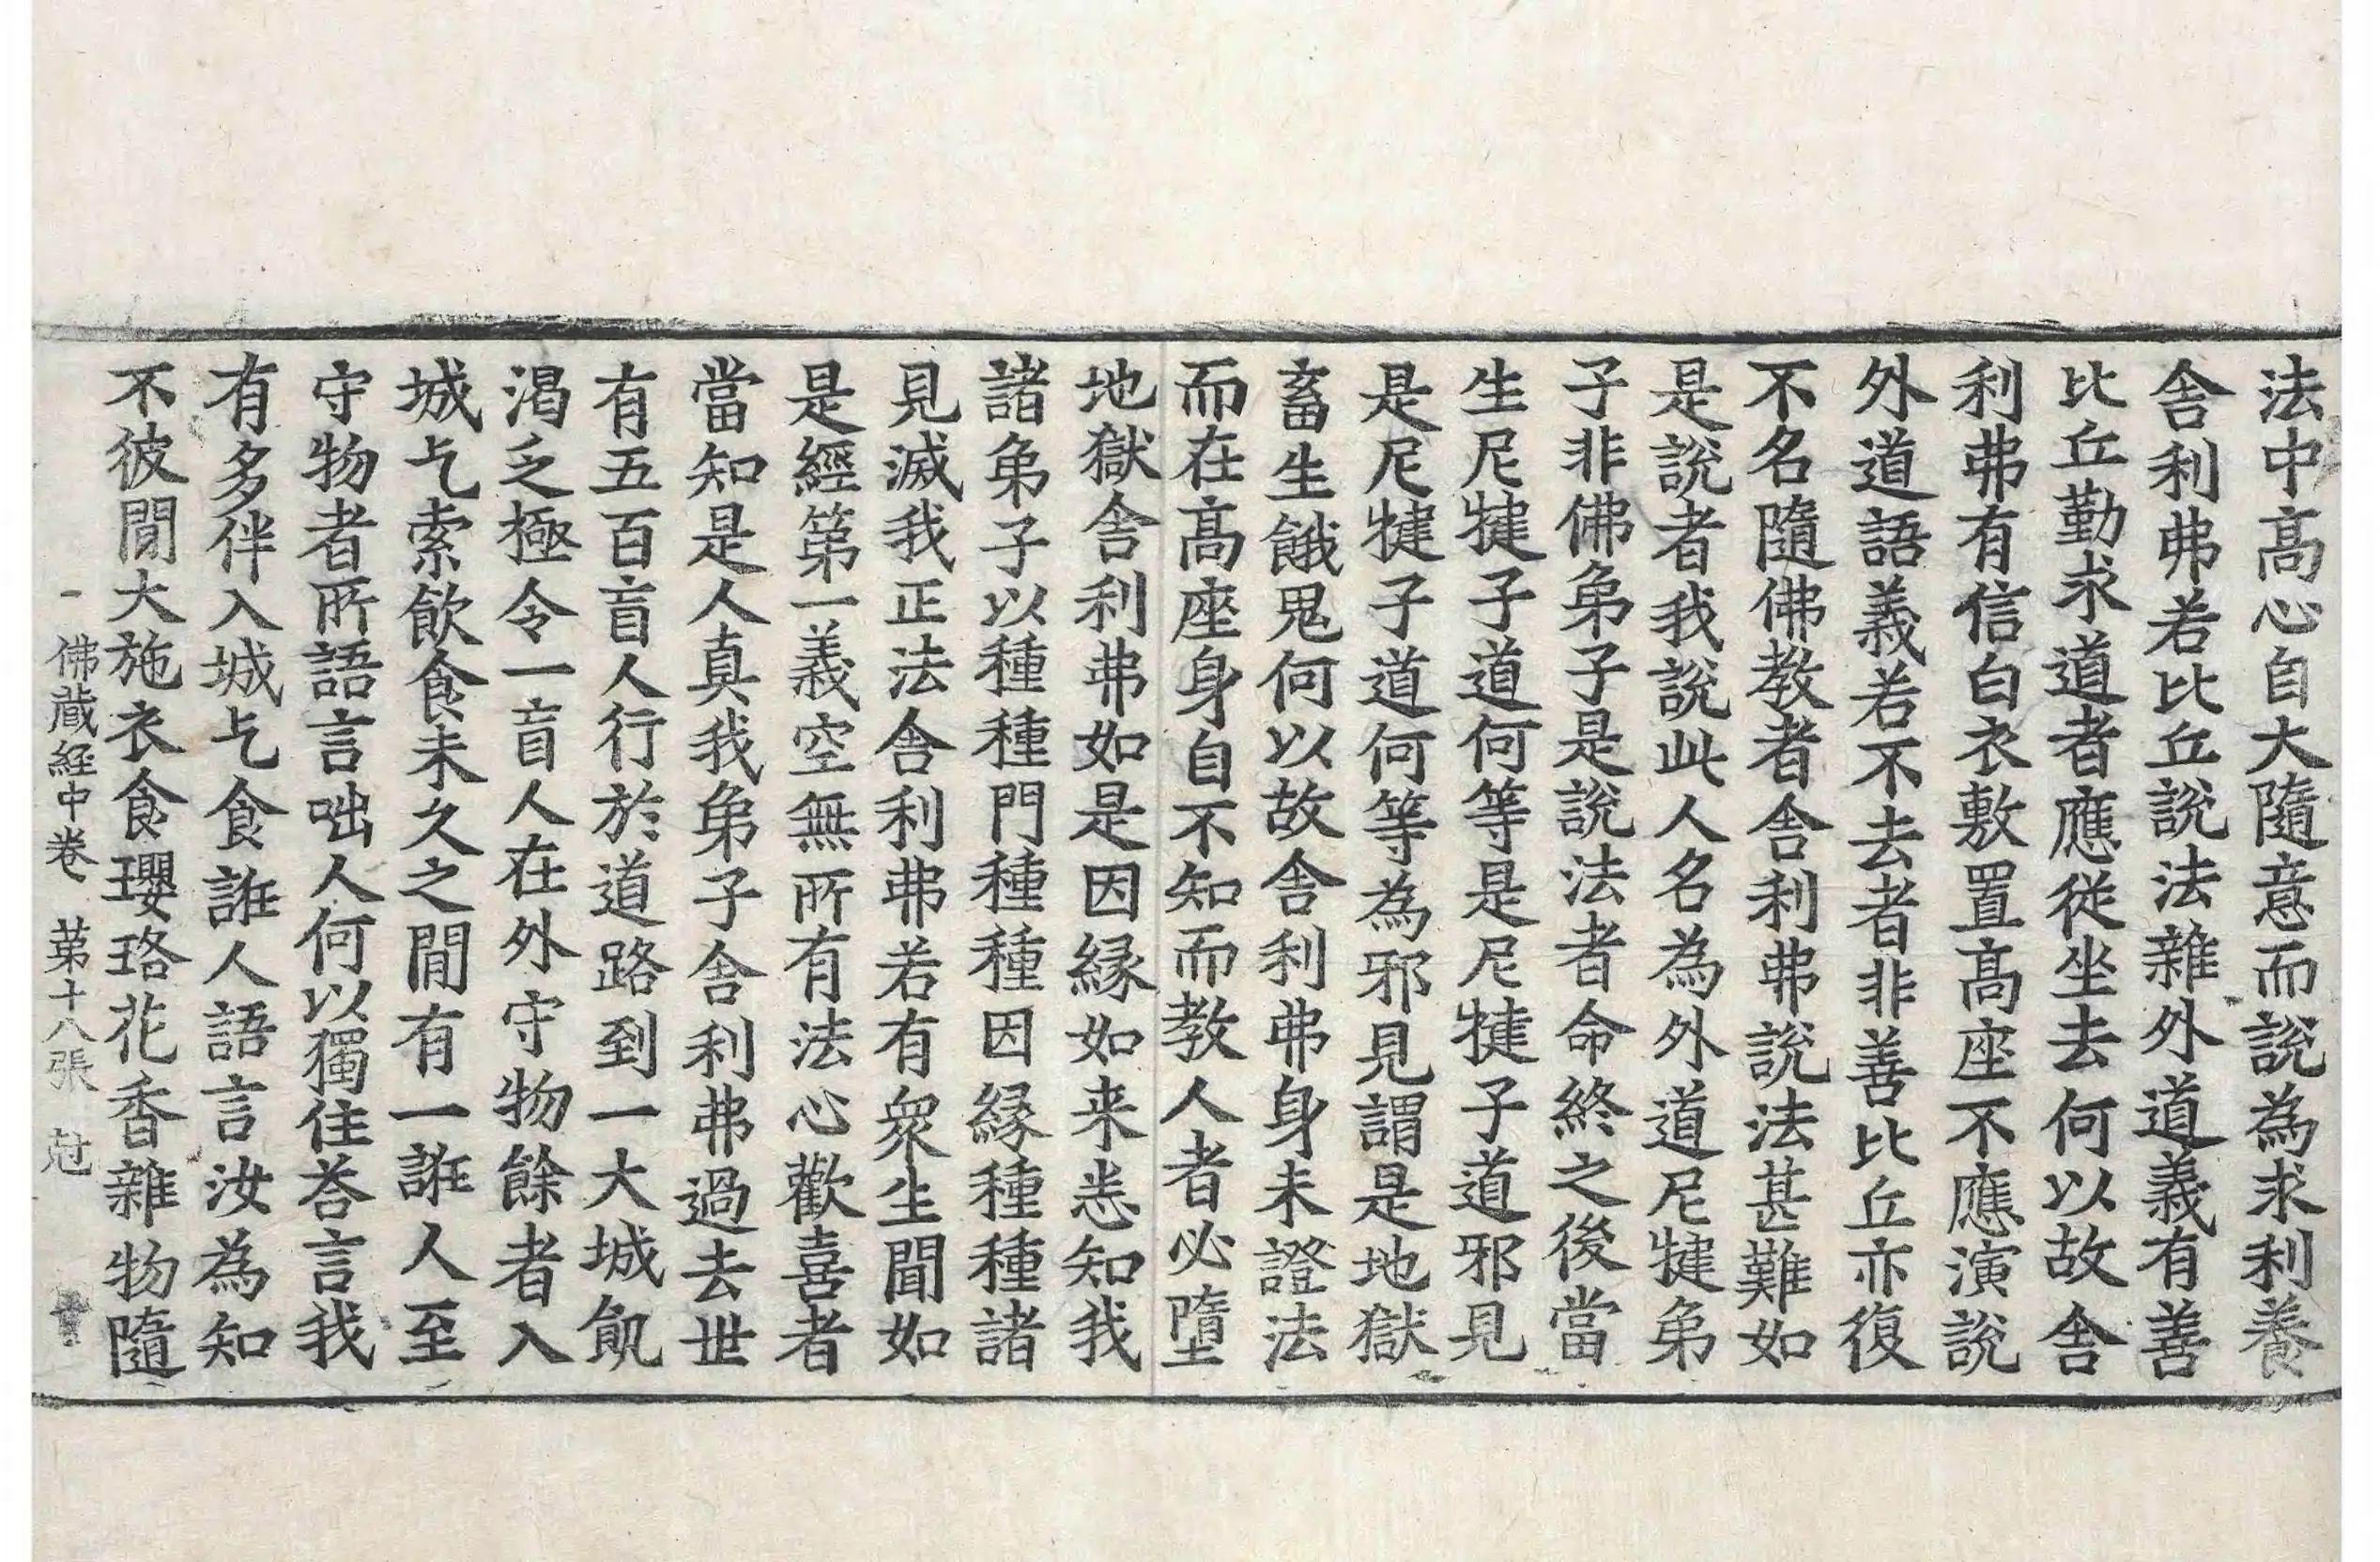 法中高心自大隨意而說為求利養
舎利弗若比丘說法雜外道義有善
比丘勤求道者應從坐去何以故舎
利弗有信白衣敷置高座不應演說
外道語義若不去者非善比丘亦復
不名隨佛教者舎利弗說法甚難如
是說者我說此人名為外道尼揵弟
子非佛弟子是說法者命終之後當
生尼揵子道何等是尼揵子道邪見
是尼揵子道何等為邪見謂是地獄
畜生餓鬼何以故舎利弗身未證法
而在高座身自不知而教人者必墮
地獄舎利弗如是因縁如来悉知我
諸弟子以種種門種種因縁種種諸
見滅我正法舎利弗若有衆生聞如
是經第一義空無所有法心歡喜者
當知是人真我弟子舎利弗過去世
有五百盲人行於道路到一大城飢
渇乏極令一盲人在外守物餘者入
城乞索飲食未久之間有一誑人至
守物者所語言咄人何以獨住荅言我
有多伴入城乞食誑人語言汝為知
不彼間大施衣食瓔珞花香雜物隨
佛蔵経中卷 第十八張